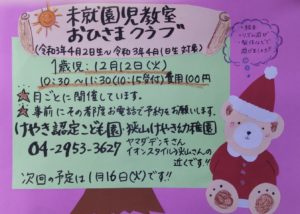 未就園児教室
おひさまクラブ
(令和3年4月2日生〜令和3年4月1日生対象)
1歳児:12月12日(火)
10:30〜11:30(10:15受付)費用100円
★月ごとに開催しています。
★事前にその都度お電話で予約をお願いします。
けやき認定こども園 狭山けやき幼稚園
04-2953-3627
ヤマダデンキさん
イオンスタイル狭山さんの
近くです!!
次回の予定は1月16日(火)です!!